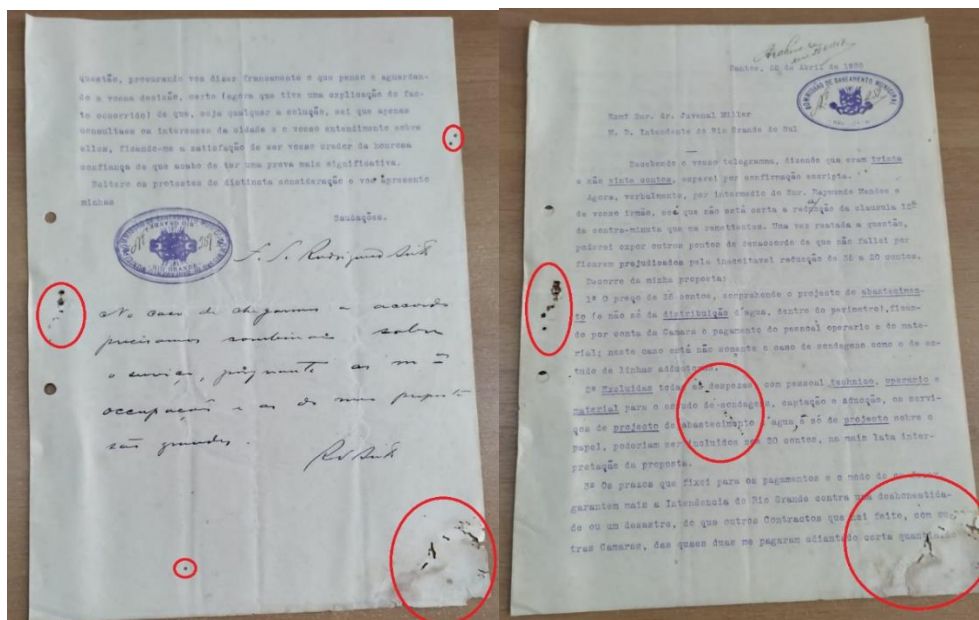 questão, procurando vos dizer francamente o que penso e aguardan-
do a vossa decisão, certo (agora que tive uma explicação do fac-
to occorrido) de que, seja qualquer a solução, sei que apenas
consultaes os interesses da cidade e o vosso entendimento sobre
elles, ficando-me a satisfação de ser vosso credor da honrosa
confiança de que acabo de ter uma prova mais significativa.
Reitero os protestos de distincta consideração e vos apresento
minhas
Saudações.
RIO GRANDE
F. S. Rodrigues
No caso de chegarmos a accordo
precisamos combinar sobre
o serviço, porquanto as m
occupações e as do meu
são grandes.
Santos, de Abril de
COMMISSÃO DE SANEAMENTO MUNICIPAL
Exmº Snr. Dr. Juvenal Miller
M. D. Intendente do Rio Grande do Sul
Recebendo o vosso telegramma, dizendo que eram trinta
e não vinte contos, esperei por confirmação escripta.
Agora, verbalmente, por intermedio do Snr. Raymundo Mendes e
de vosso irmão, sei que não está certa a redacção da clausula
da contra-minuta que me remettestes. Uma vez reatada a questão,
poderei expor outros pontos de desaccordo de que não fallei por
ficarem prejudicados pela inaceitavel reducção de 35 a 20 contos.
Decorre da minha proposta:
1º O preço de 35 contos, comprehende o projecto do abastecimen-
to (e não só da distribuição d'agua, dentro do perimetro), fican-
do por conta da Camara o pagamento do pessoal operario e do mate-
rial; neste caso está não somente o caso de sondagens como o de es-
tudo de linhas adductoras.
2º Excluidas todas as despezas com pessoal technico, operario e
material para o estudo de sondagens, captação e adducção, os servi-
ços de projecto de abastecimento d'agua, e só de projecto sobre o
papel, poderiam ser incluidos nos 20 contos, na mais lata inter-
pretação da proposta.
3º Os prazos que fixei para os pagamentos e o modo de
garantem mais a Intendencia do Rio Grande contra uma deshonestida-
de ou um desastre, do que outros Contractos que hei feito, com ou-
tras Camaras, das quaes duas me pagaram adiantado certa quantia